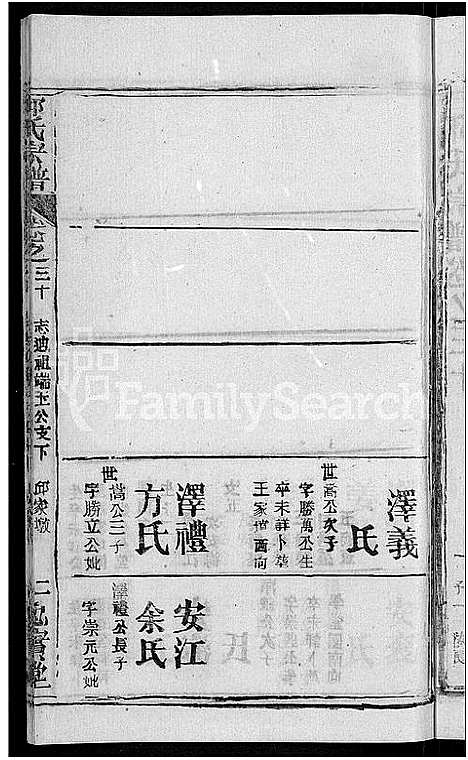 澤義
氏
世
嵩公次子
字勝萬公生
卒未詳卜葬
王家塆酉向
澤禮
方氏
世
嵩公三子
字勝立公妣
安江
余氏
澤禮公長子
字崇元公妣
氏宗譜
卷之三十
志迪祖端玉公支下
邱家墩
FamilySearch